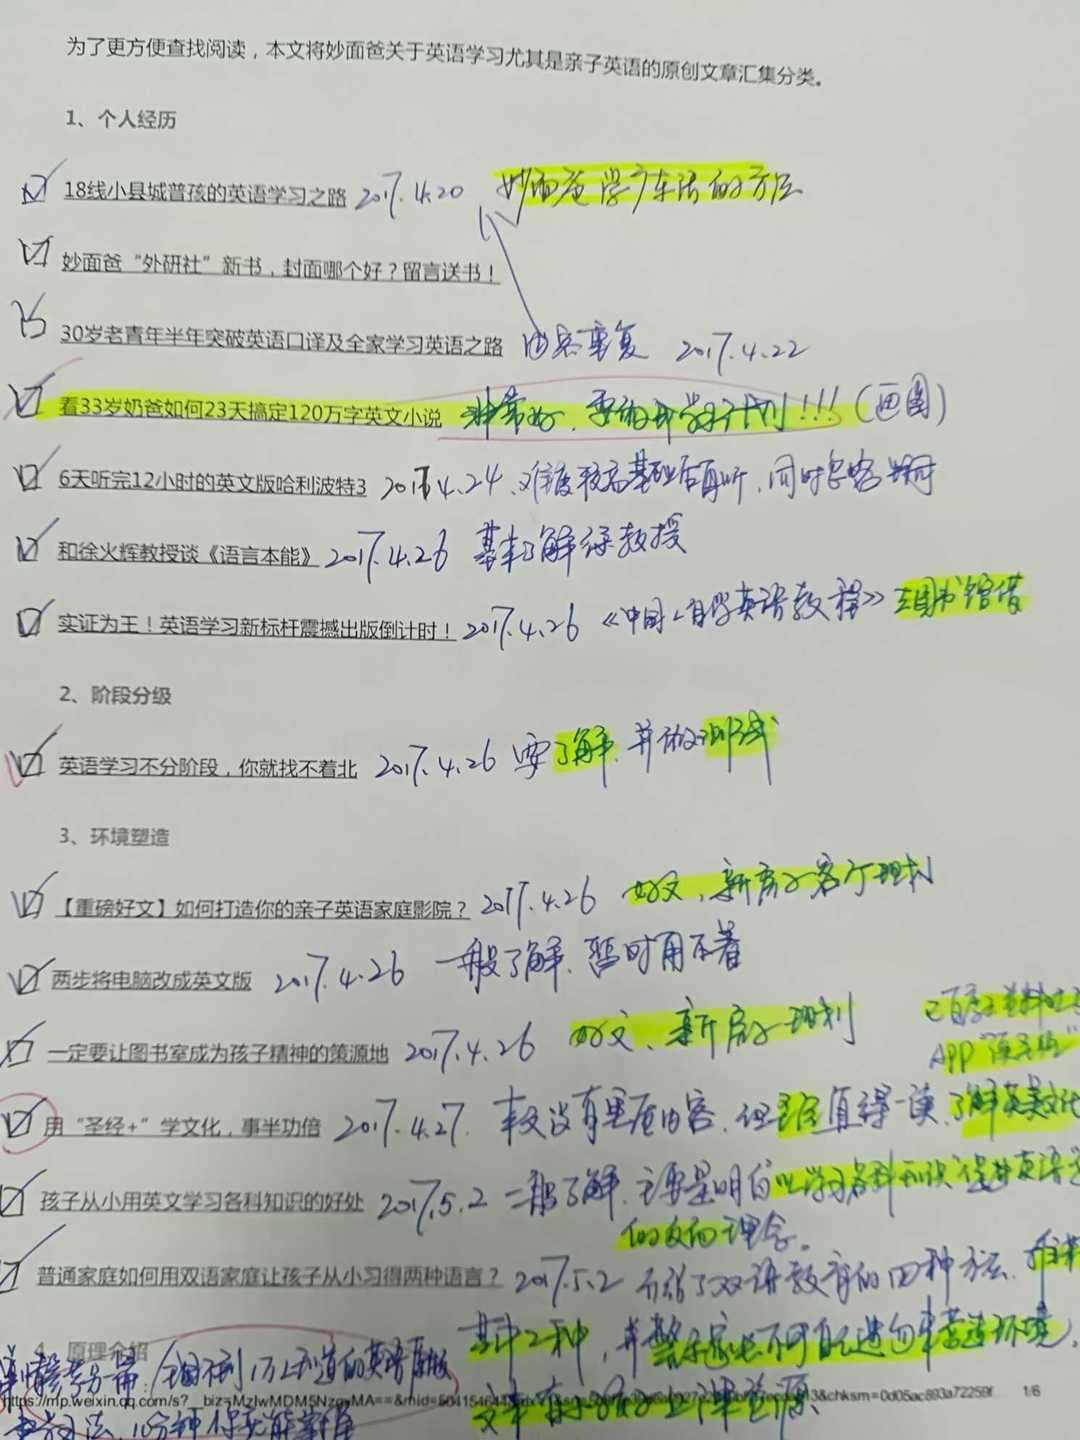 为了更方便查找阅读，本文将妙面爸关于英语学习尤其是亲子英语的原创文章汇集分类。
1、个人经历
18线小县城普孩的英语学习之路 2017.4.20 妙面爸学广东话的方法
妙面爸“外研社”新书，封面哪个好？留言送书！
30岁老青年半年突破英语口译及全家学习英语之路 内容重复 2017.4.22
看33岁奶爸如何23天搞定120万字英文小说 非常好，要制 学习计划！！！（画图）
6天听完12小时的英文版哈利波特3 2017.4.24、难度较高基础后再听，同时
和徐火辉教授谈《语言本能》 2017.4.26 基本了解徐教授
实证为王！英语学习新标杆震撼出版倒计时！ 2017.4.26 《中国人自学英语教程》去图书馆借
2、阶段分级
英语学习不分阶段，你就找不着北 2017.4.26 要了解、并做测试
3、环境塑造
【重磅好文】如何打造你的亲子英语家庭影院？ 2017.4.26 好文、新房子客厅
两步将电脑改成英文版 2017.4.26 一般了解、暂时用不着
一定要让图书室成为孩子精神的策源地 2017.4.26 好文、新房子
APP
用“圣经+”学文化，事半功倍 2017.4.27. 本文没有 内容，但圣经值得一读，了解英美文化
孩子从小用英文学习各科知识的好处 2017.5.2 一般了解，主要是明白“以学习各科知识促进英语
的 理念。
普通家庭如何用双语家庭让孩子从小习得两种语言？ 2017.5.2 介绍了双语教育的四种方法、
其中2种，并 不可 环境，
4、原理介绍
1万 的英语
https://mp.weixin.qq.com/s?__biz=MzIwMDM5NzgxMA==&mid= 3&chksm=0d05ac893a72259f... 1/6
文中有 资源、
方法，10分钟